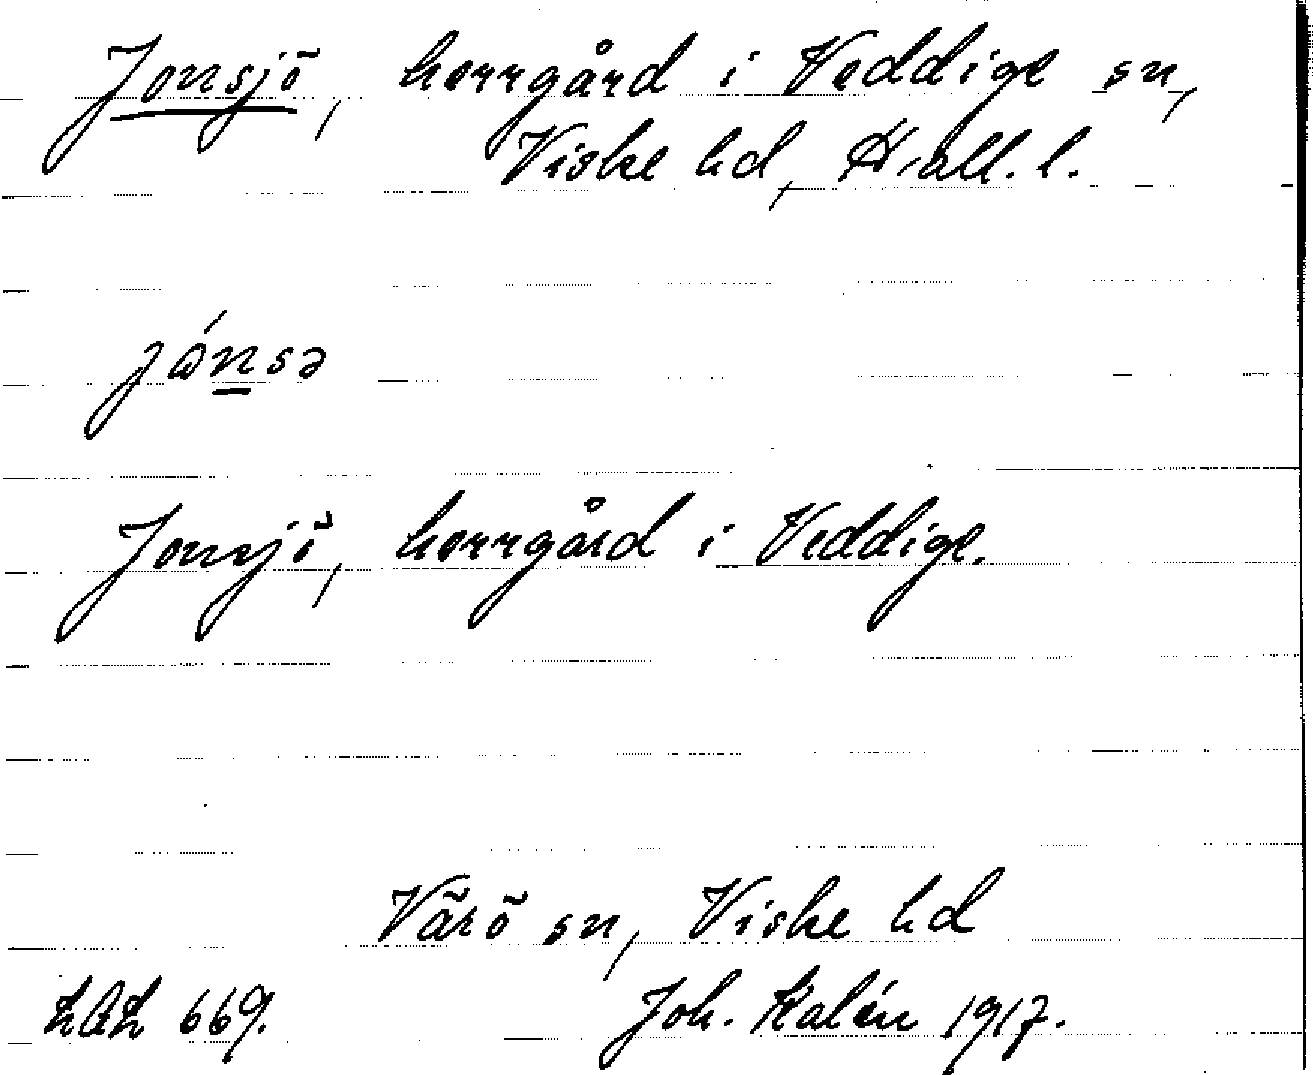 Jonsjö, herrgård i Veddige sn,
Viske hd, Hall. l.
jónsə
Jonsjö, herrgård i Veddige.
Värö sn, Viske hd
LAL 669. Joh. Kalén 1917.